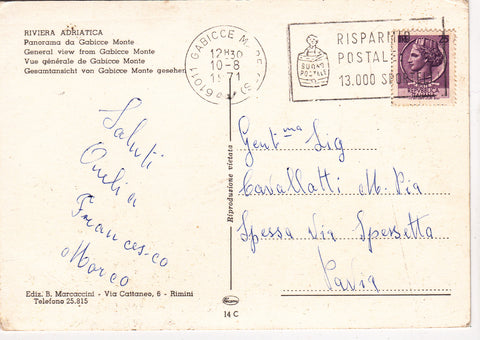 RIVIERA ADRIATICA
Panorama da Gabicce Monte
General view from Gabicce Monte
Vue générale de Gabicce Monte
Gesamtansicht von Gabicce Monte gesehen
61011 GABICCE M
12H30
10-8
1971
(PS)
BUONO POSTALE
RISPARMIO
POSTALE
13.000 SPORTELLI
Saluti
Onelia
Francesco
Marco
Riproduzione vietata
Gent.ma Sig
Cavallotti M. Pia
Spessa Via Spessetta
Pavia
Ediz. B. Marcaccini - Via Cattaneo, 6 - Rimini
Telefono 25.815
14 C